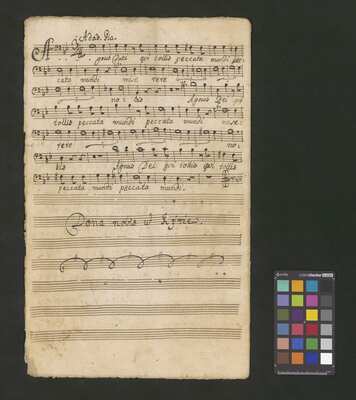 Adagio.
Agnus Dei qui tollis peccata mundi pec:
cata mundi mise rere
no: bis Agnus Dei qui
tollis peccata mundi peccata mundi mise:
rere no:
bis Agnus Dei qui tollis qui tollis
peccata mundi peccata mundi.
Dona nobis ut Kyrie.